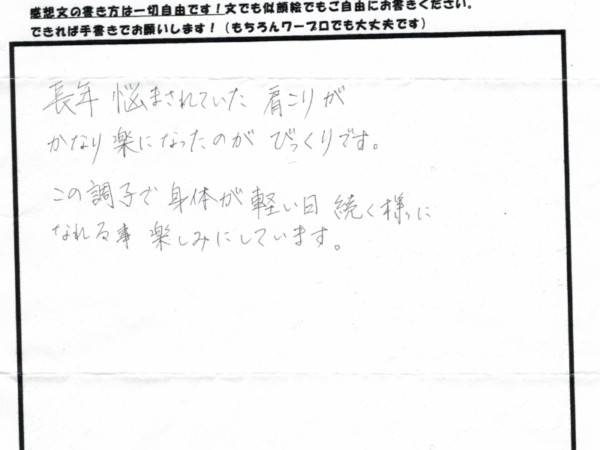 感想文の書き方は一切自由です！文でも似顔絵でもご自由にお書きください。
できれば手書きでお願いします！（もちろんワープロでも大丈夫です）
長年 悩まされていた 肩こりが
かなり 楽になったのが びっくりです。
この調子で 身体が 軽い日 続く様に
なれる事 楽しみにしています。